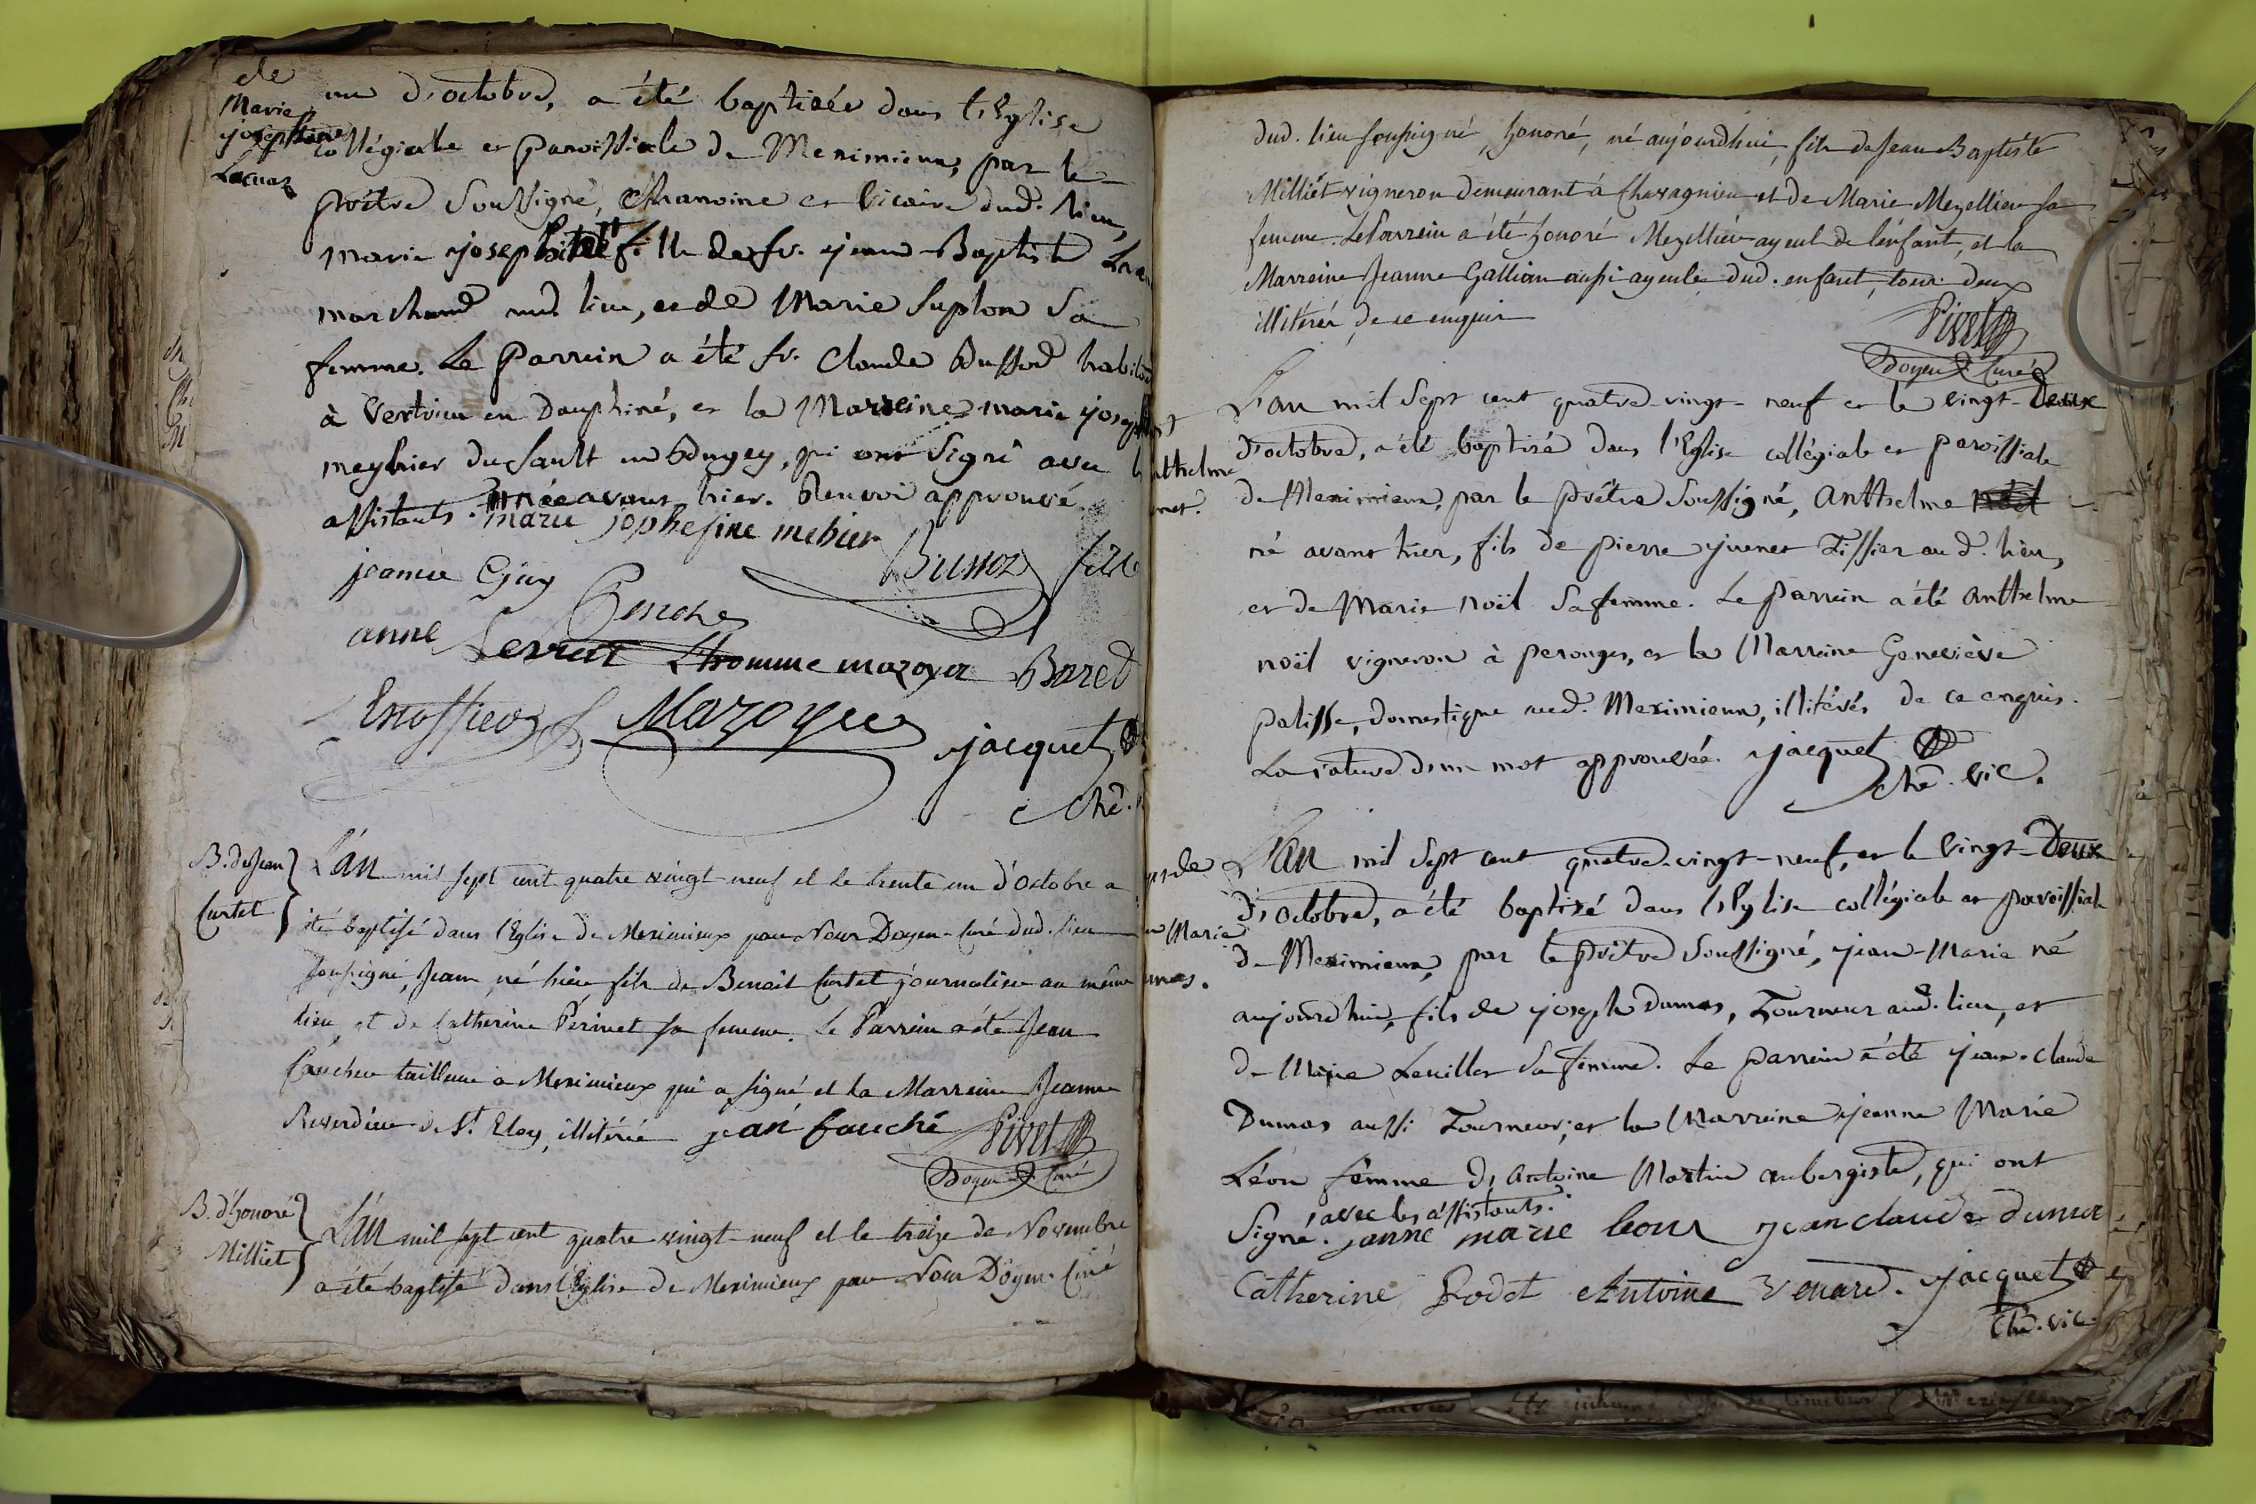 de
Marie
josephine
Lacuaz
un d'octobre, a été baptisée dans l'Eglise
collégiale et paroissiale de Meximieux, par le
prêtre soussigné, Chanoine et vicaire dud. lieu,
marie josephine fille de sr. jean-Baptiste
marchand aud. lieu, et de Marie Suplon Sa
femme. Le Parrein a été sr. Claude Bussod habitant
à Vertrieu en Dauphiné, et la Marreine marie joseph
meybier du Sault en Bugey, qui ont Signé avec les
assistants. née avant hier. Renvoi approuvé.
marie jophefine mebier
Bussoz
jeanne Guy
anne Servat L'homme mazoyer Baret
Mazoyer
jacquet
Che.
B. de Jean
Curtet
L'an mil sept cent quatre vingt neuf et le trente un d'Octobre a
été baptisé dans l'Eglise de Meximieux par Nous Doyen-Curé dud. lieu
soussigné, Jean né hier fils de Benoit Curtet journalier au même
lieu, et de Catherine Périnet sa femme. Le Parrein a été Jean
Faucheu tailleur à Meximieux qui a signé et la Marreine Jeanne
de St. Eloy, illitérée jean fauché Pivet
Doyen Curé
B. d'honoré
Milliet
L'an mil sept cent quatre-vingt-neuf et le treize de Novembre
a été baptisé dans l'Eglise de Meximieux par Nous Doyen-Curé
dud. lieu soussigné, honoré, né aujourdhui, fils de Jean Baptiste
Milliet vigneron demeurant à Chavagnieu et de Marie Mezellieu sa
femme. Le Parrein a été honoré Mezellieu ayeul de l'enfant, et la
Marreine Jeanne Gallian aussi ayeule dud. enfant, tous deux
illitérés de ce enquis
Pivet
Doyen Curé
L'an mil Sept cent quatre-vingt-neuf et le vingt-Deux
d'octobre, a été baptisé dans l'Eglise collégiale et paroissiale
de Meximieux, par le prêtre Soussigné, Anthelme
né avant hier, fils de pierre juenet Tissier aud. lieu,
et de Marie Noël Sa femme. Le Parrein a été Anthelme
noël vigneron à perouges, et la Marreine Geneviève
palisse, domestique aud. Meximieux, illitérés de ce enquis.
La rature d'un mot approuvée. jacquet
che. vic.
L'an mil Sept cent quatre-vingt-neuf, et le vingt-Deux
d'octobre, a été baptisé dans l'Eglise collégiale et paroissiale
de Meximieux, par le prêtre Soussigné, jean-Marie né
aujourd'hui, fils de joseph dumas, Tourneur aud. lieu, et
de Marie Levillers Sa femme. Le parrein a été jean-claude
Dumas aussi Tourneur, et la Marreine jeanne Marie
Léon femme d'Antoine Martin aubergiste, qui ont
Signé avec les assistants.
janne marie leour jean claude dumas
Catherine Rodet Antoine Venard. jacquet
Che. vic.